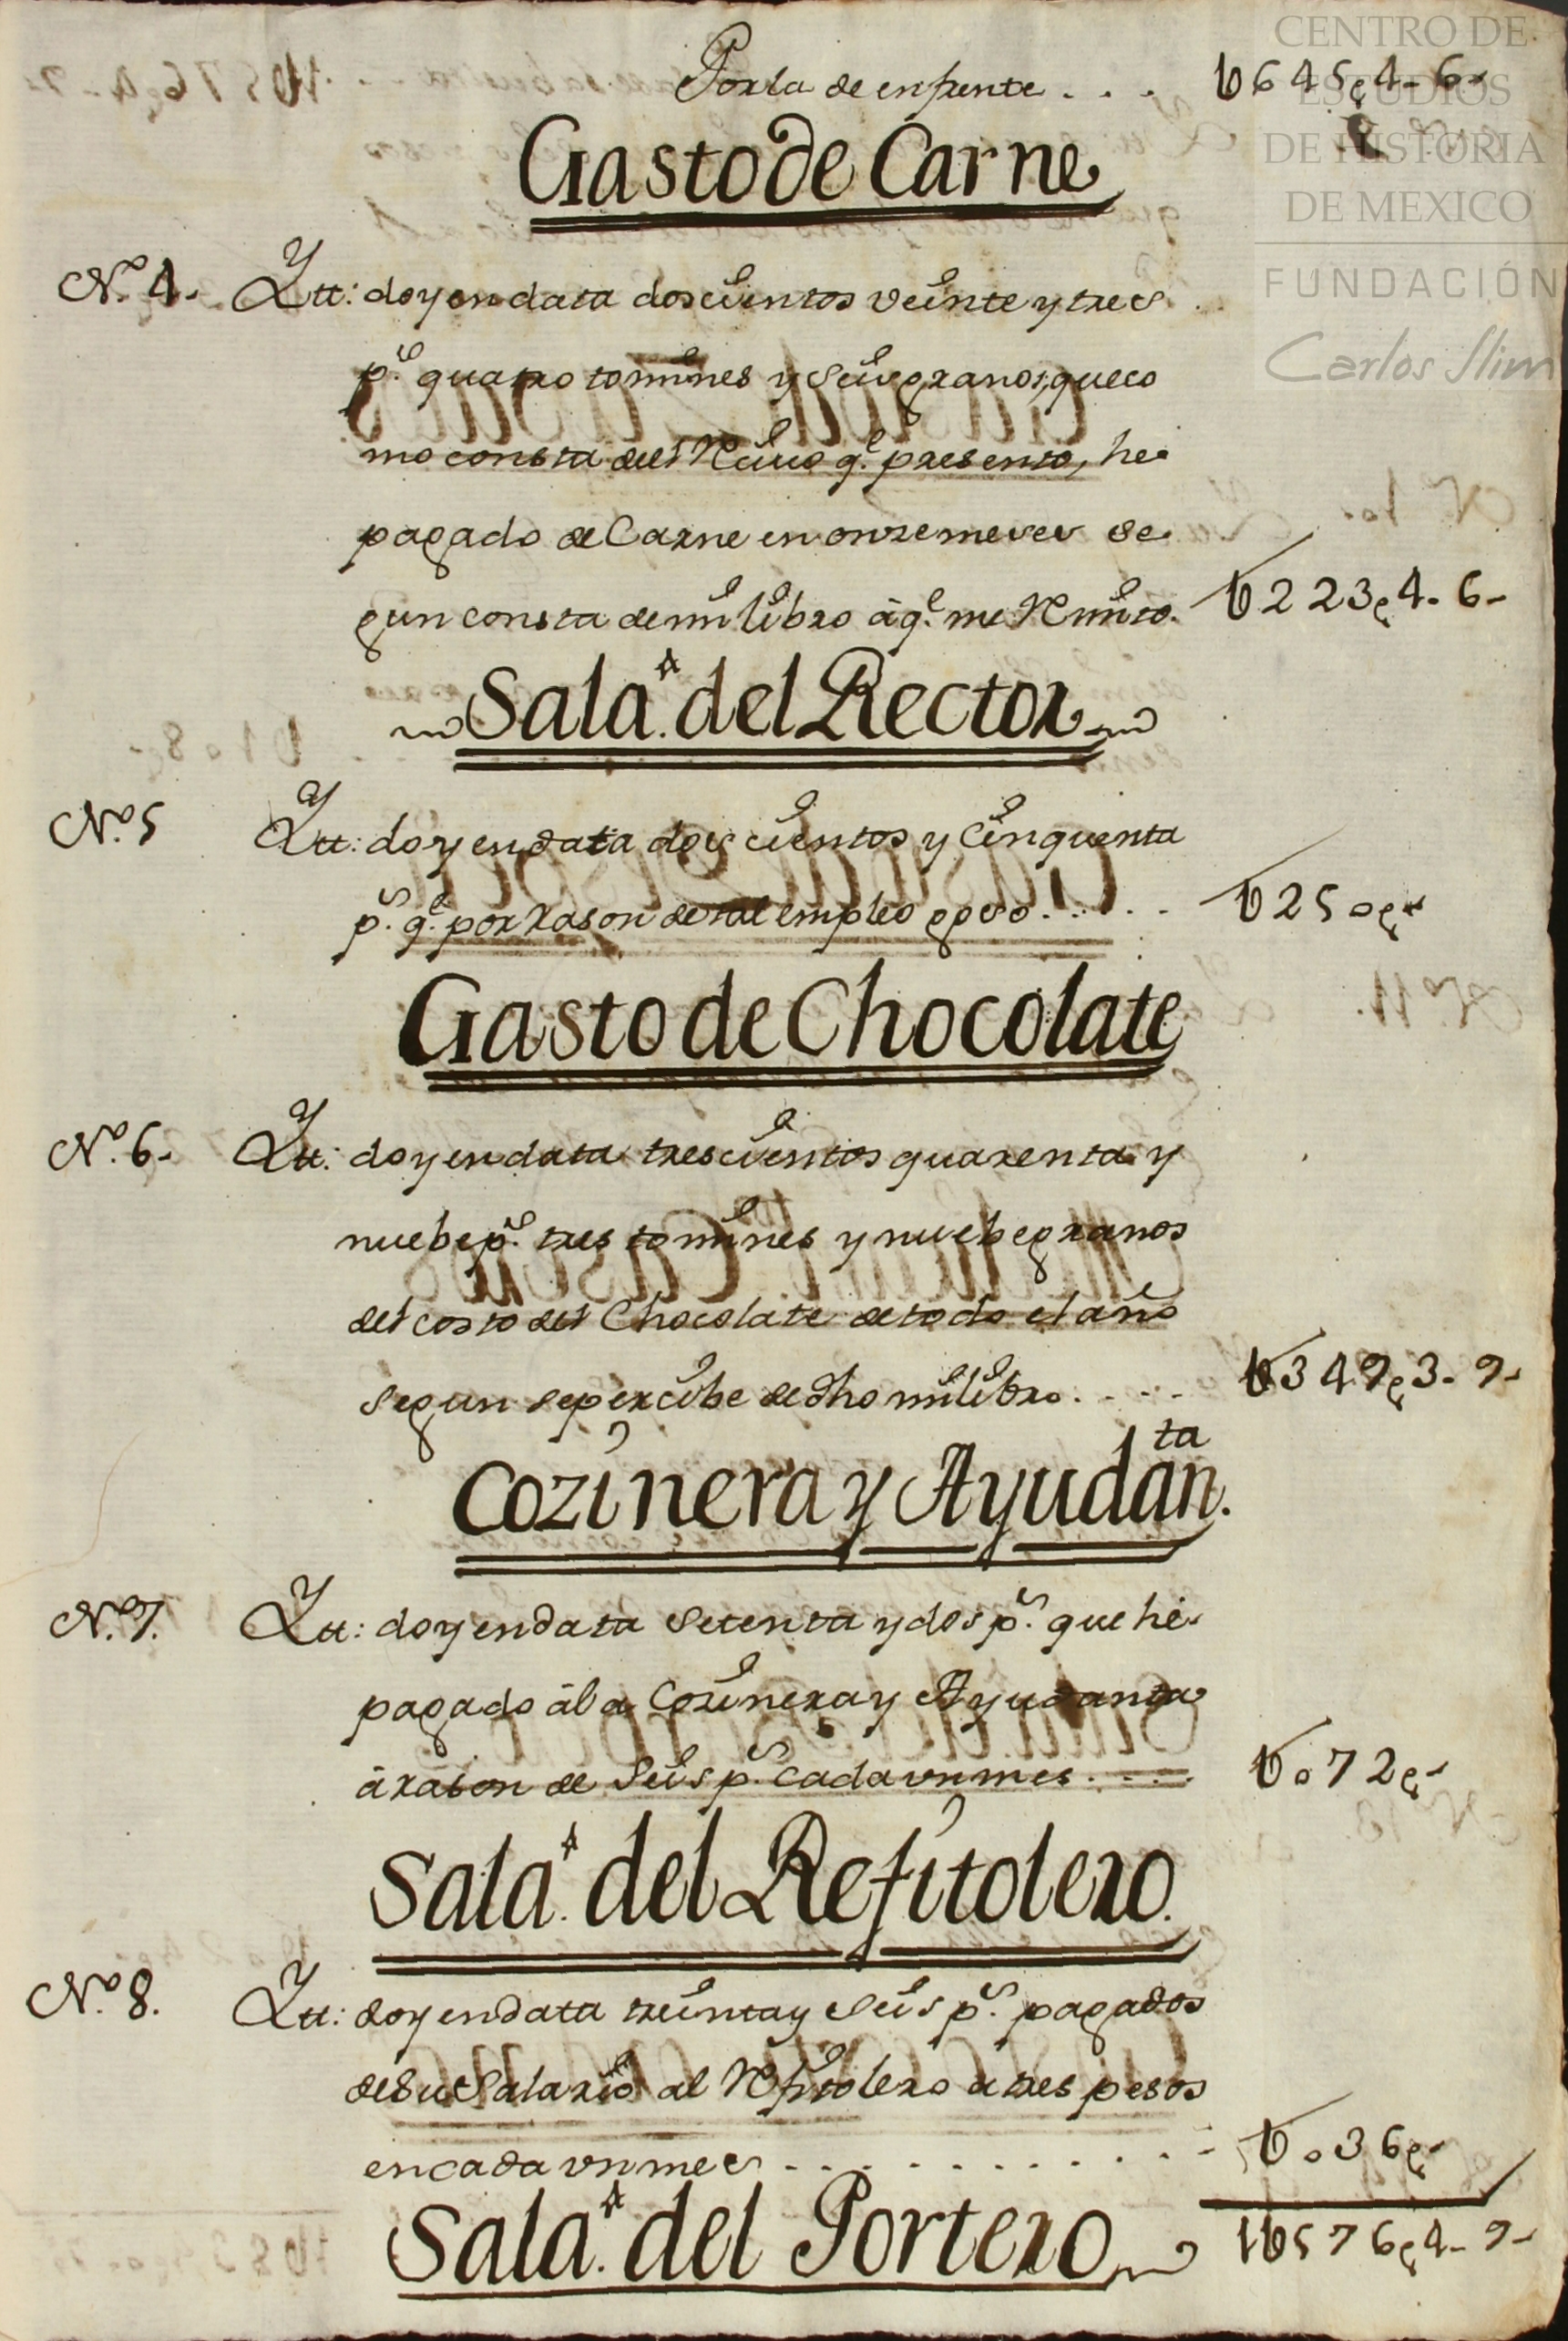 CENTRO DE
ESTUDIOS
DE HISTORIA
DE MEXICO
FUNDACIÓN
Carlos Slim
Por la de enfrente . . . U645p4-6-
Gasto de Carne
N.o 4. Ytt: doy en data doscientos veinte y tres
p.s quatro tomines y seis granos, que co
mo consta del Recivo q.e presento, he
pagado de Carne en onze meses se
gun consta de mi libro á q.e me Remito. U223p4-6-
Sala.o del Rector
N.o 5 Ytt: doy en data dos cientos y cinquenta
p.s q.e por rason de tal empleo goso. . . . . . U250p.s
Gasto de Chocolate
N.o 6- Ytt: doy en data trescientos quarenta y
nuebe p.s tres tomines y nuebe granos
del costo del Chocolate de todo el año
segun se percibe de dho mi libro. . . . . U349p3-9-
Cozinera y Ayudan.ta
N.o 7. Ytt: doy en data setenta y dos p.s que he
pagado á la Cozinera y Ayudanta
á rason de seis p.s cada un mes. . . . . Uo72p.s
Sala.o del Refitolero.
N.o 8. Ytt: doy en data treinta y seis p.s pagados
de su Salario al Refitolero a tres pesos
en cada un mes . . . . . . . . . . . . Uo36p.s
1U576p4-9-
Sala.o del Portero